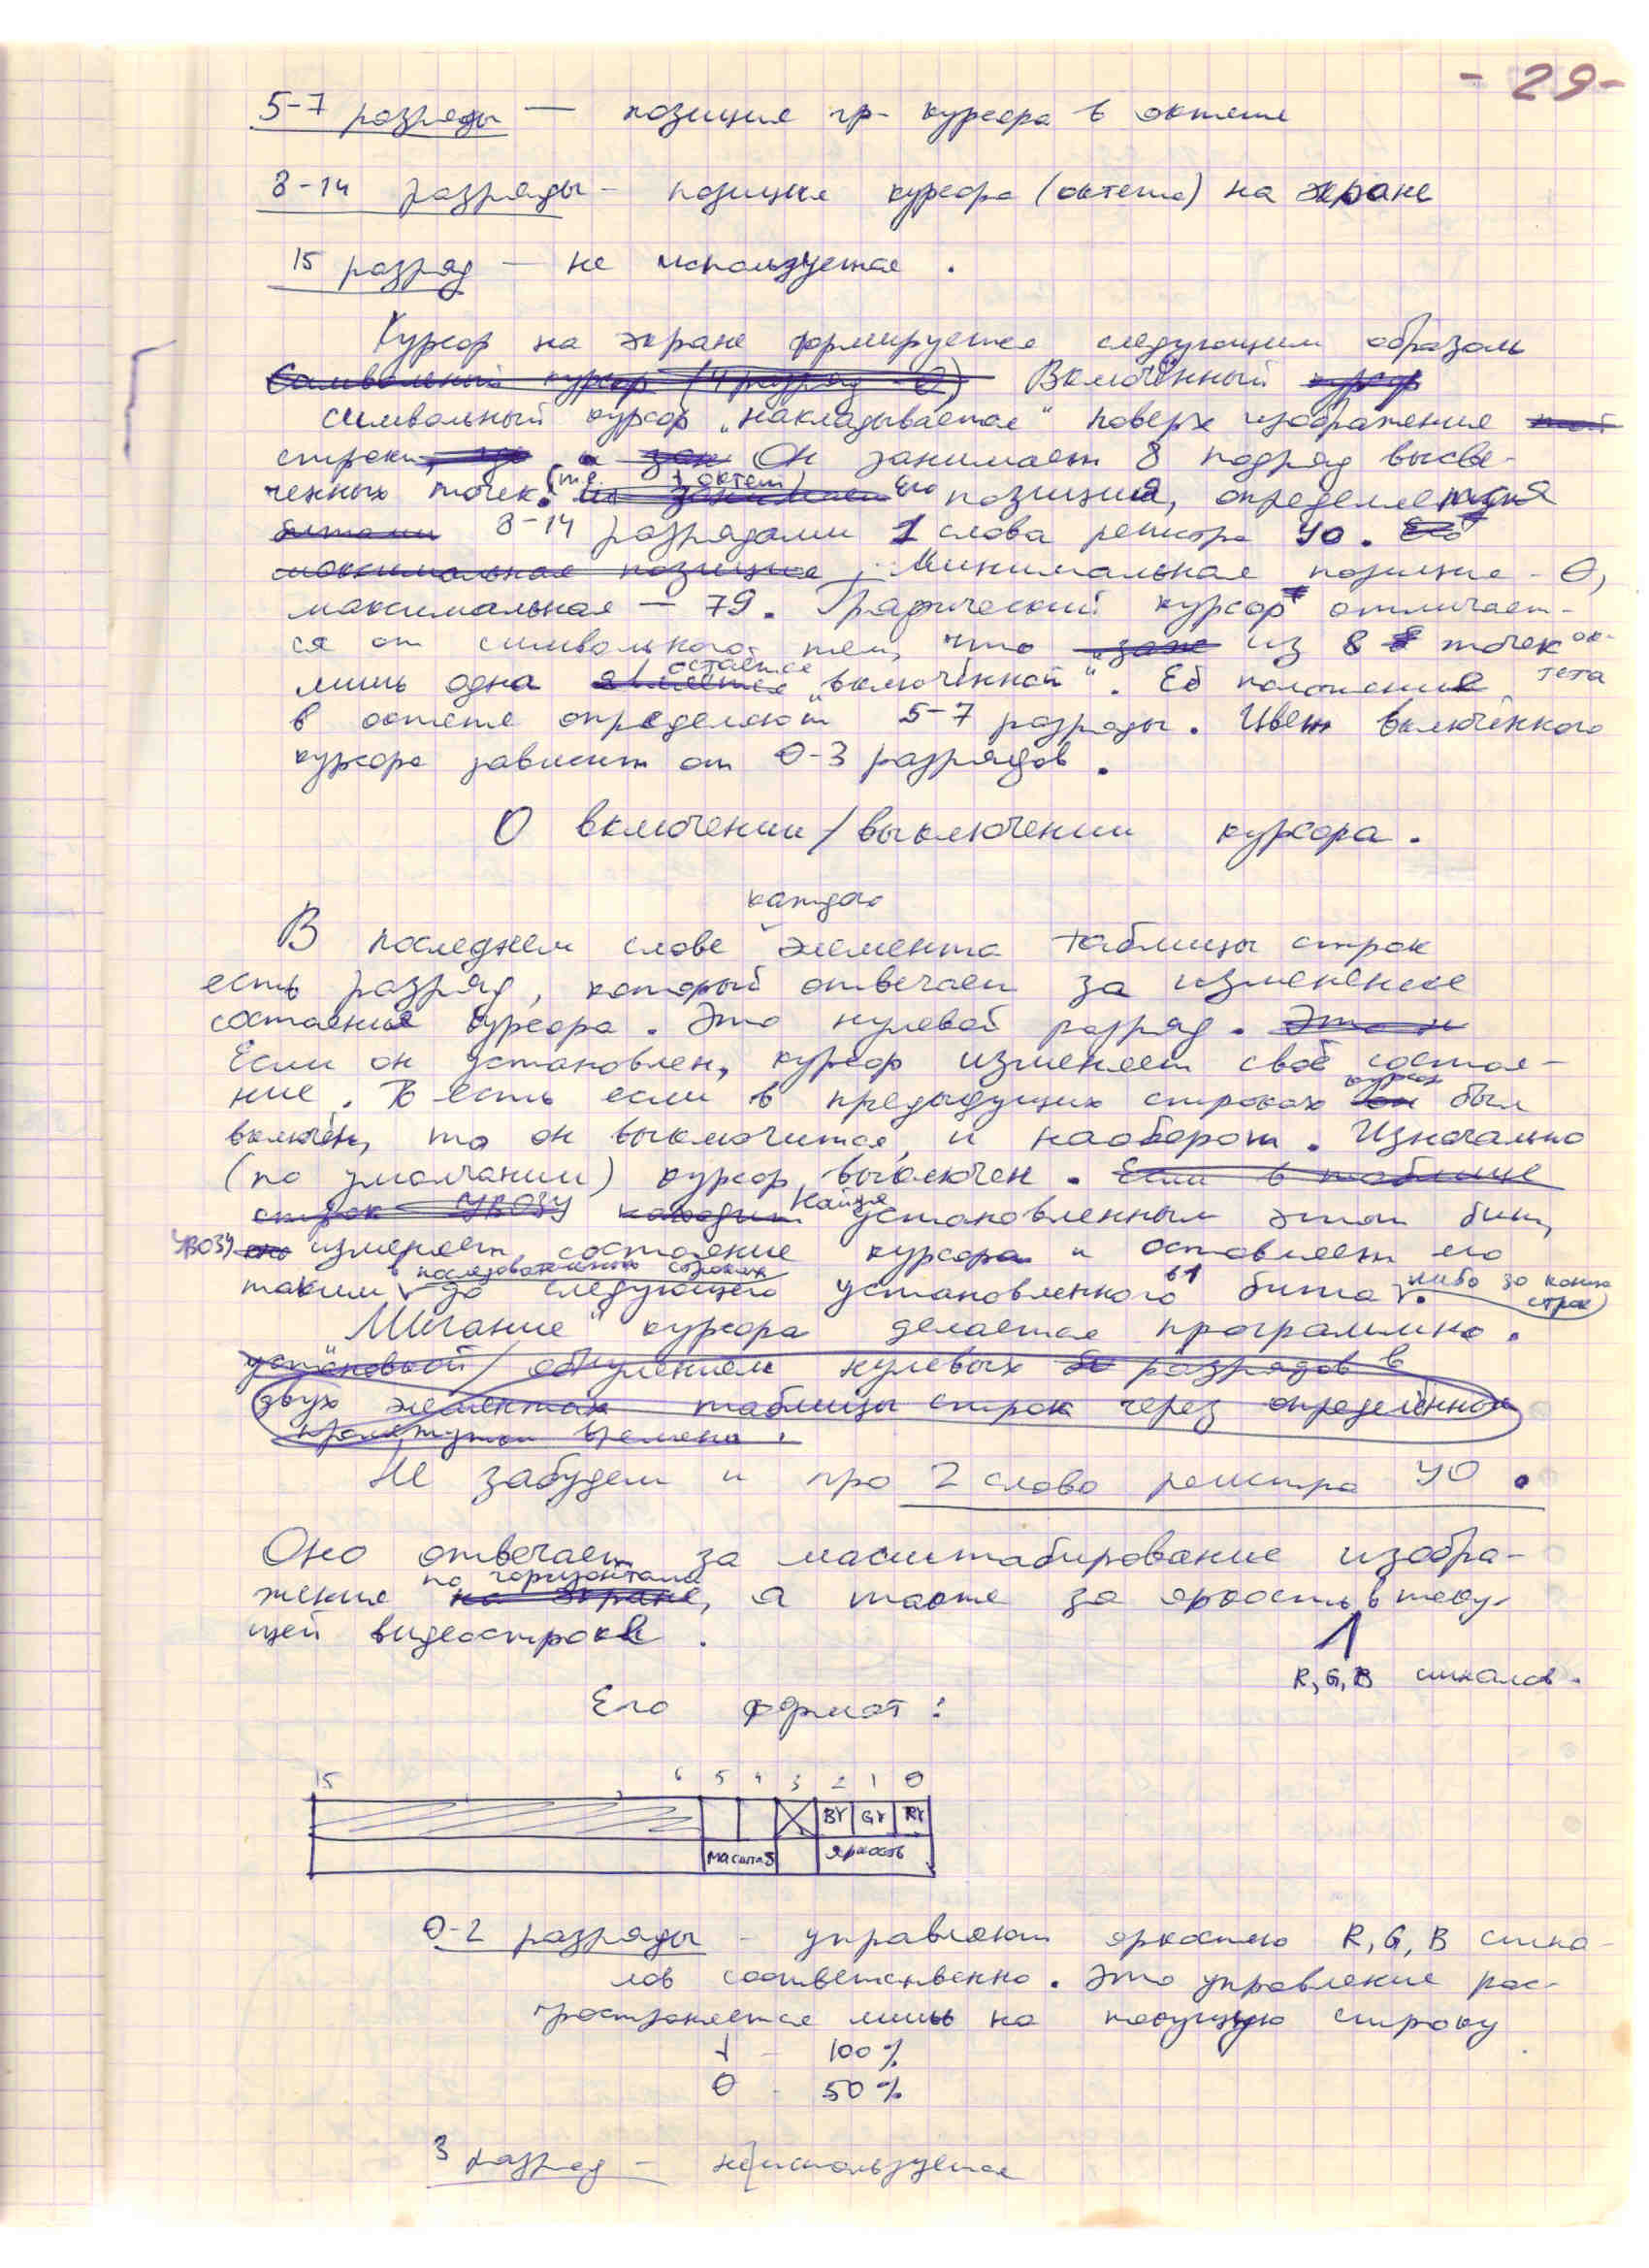 - 29 -
5-7 разряды — позиция гр. курсора в октете
8-14 разряды - позиция курсора (октета) на экране
15 разряд — не используется .
Курсор на экране формируется следующим образом
Символьный курсор (4 разряд - 0) Включённый курсор
символьный курсор „накладывается“ поверх изображения
строки, Он занимает 8 подряд высве-
ченных точек. (т.е. 1 октет) Его позиция, определяется
битами 8-14 разрядами 1 слова регистра УО. Его
максимальная позиция . Минимальная позиция - 0,
максимальная — 79. Графический курсор отличает-
ся от символьного тем, что из 8 точек ок-
тета
лишь одна является остаётся „включённой“. Её положение
в октете определяют 5-7 разряды. Цвет включённого
курсора зависит от 0-3 разрядов.
О включении/выключении курсора.
каждого
В последнем слове элемента таблицы строк
есть разряд, который отвечает за изменение
состояния курсора. Это нулевой разряд. Это
Если он установлен, курсор изменяет своё состоя-
ние. То есть если в предыдущих строках он курсор был
включён, то он выключится, и наоборот. Изначально
(по умолчанию) курсор выключен. Если в таблице
строк УВОЗУ находит Найдя установленным этот бит,
УВОЗУ оно изменяет состояние курсора и оставляет его
таким в последовательных строках до следующего установленного в 1 бита либо до конца
строк)
„Мигание“ курсора делается программно.
установкой/обнулением нулевых разрядов в
двух элементах таблицы строк через определённые
промежутки времени.
Не забудем и про 2 слово регистра УО.
Оно отвечает за масштабирование изобра-
жения на экране по горизонтали, а также за яркость в теку-
щей видеостроке.
R, G, B сигналов.
Его формат:
15 6 5 4 3 2 1 0
BY GY RY
масштаб яркость
0-2 разряды - управляют яркостью R, G, B сигна-
лов соответственно. Это управление рас-
пространяется лишь на текущую строку
1 - 100%
0 - 50%
3 разряд — не используется